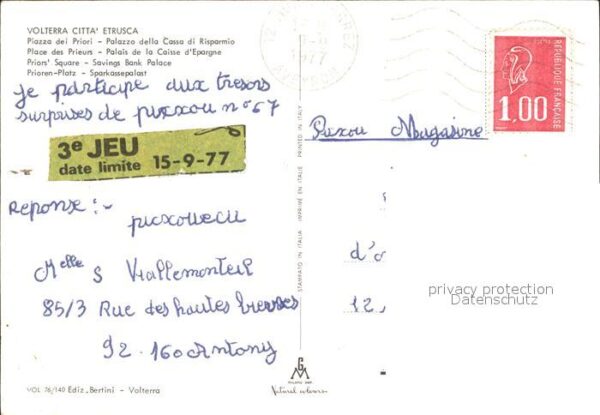 VOLTERRA CITTA' ETRUSCA
Piazza dei Priori - Palazzo della Cassa di Risparmio
Place des Prieurs - Palais de la Caisse d'Epargne
Priors' Square - Savings Bank Palace
Prioren-Platz - Sparkassepalast
je participe aux tresors
surprises de pixxou n° 67
3e JEU
date limite 15-9-77
Reponse :-
Melle S Viallemonteil
85/3 Rue des hautes
92.160 Antony
VOL 76/140 Ediz. Bertini - Volterra
STAMPATO IN ITALIA IMPRIMÉ EN ITALIE PRINTED IN ITALY
Natural colours
1977
1,00
REPUBLIQUE FRANÇAISE
Magasine
d'o
12,
privacy protection
Datenschutz